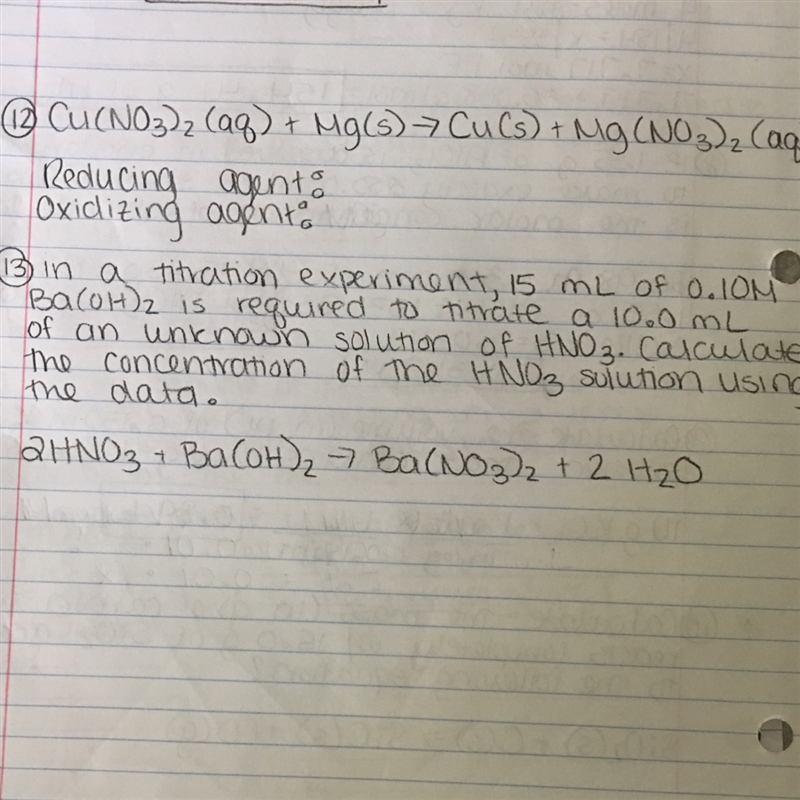 ⑫ Cu(NO3)2 (aq) + Mg(s) → Cu(s) + Mg(NO3)2 (aq
Reducing agent:
Oxidizing agent:
⑬ in a titration experiment, 15 mL of 0.10M
Ba(OH)2 is required to titrate a 10.0 mL
of an unknown solution of HNO3. Calculate
the concentration of the HNO3 solution using
the data.
2HNO3 + Ba(OH)2 → Ba(NO3)2 + 2 H2O